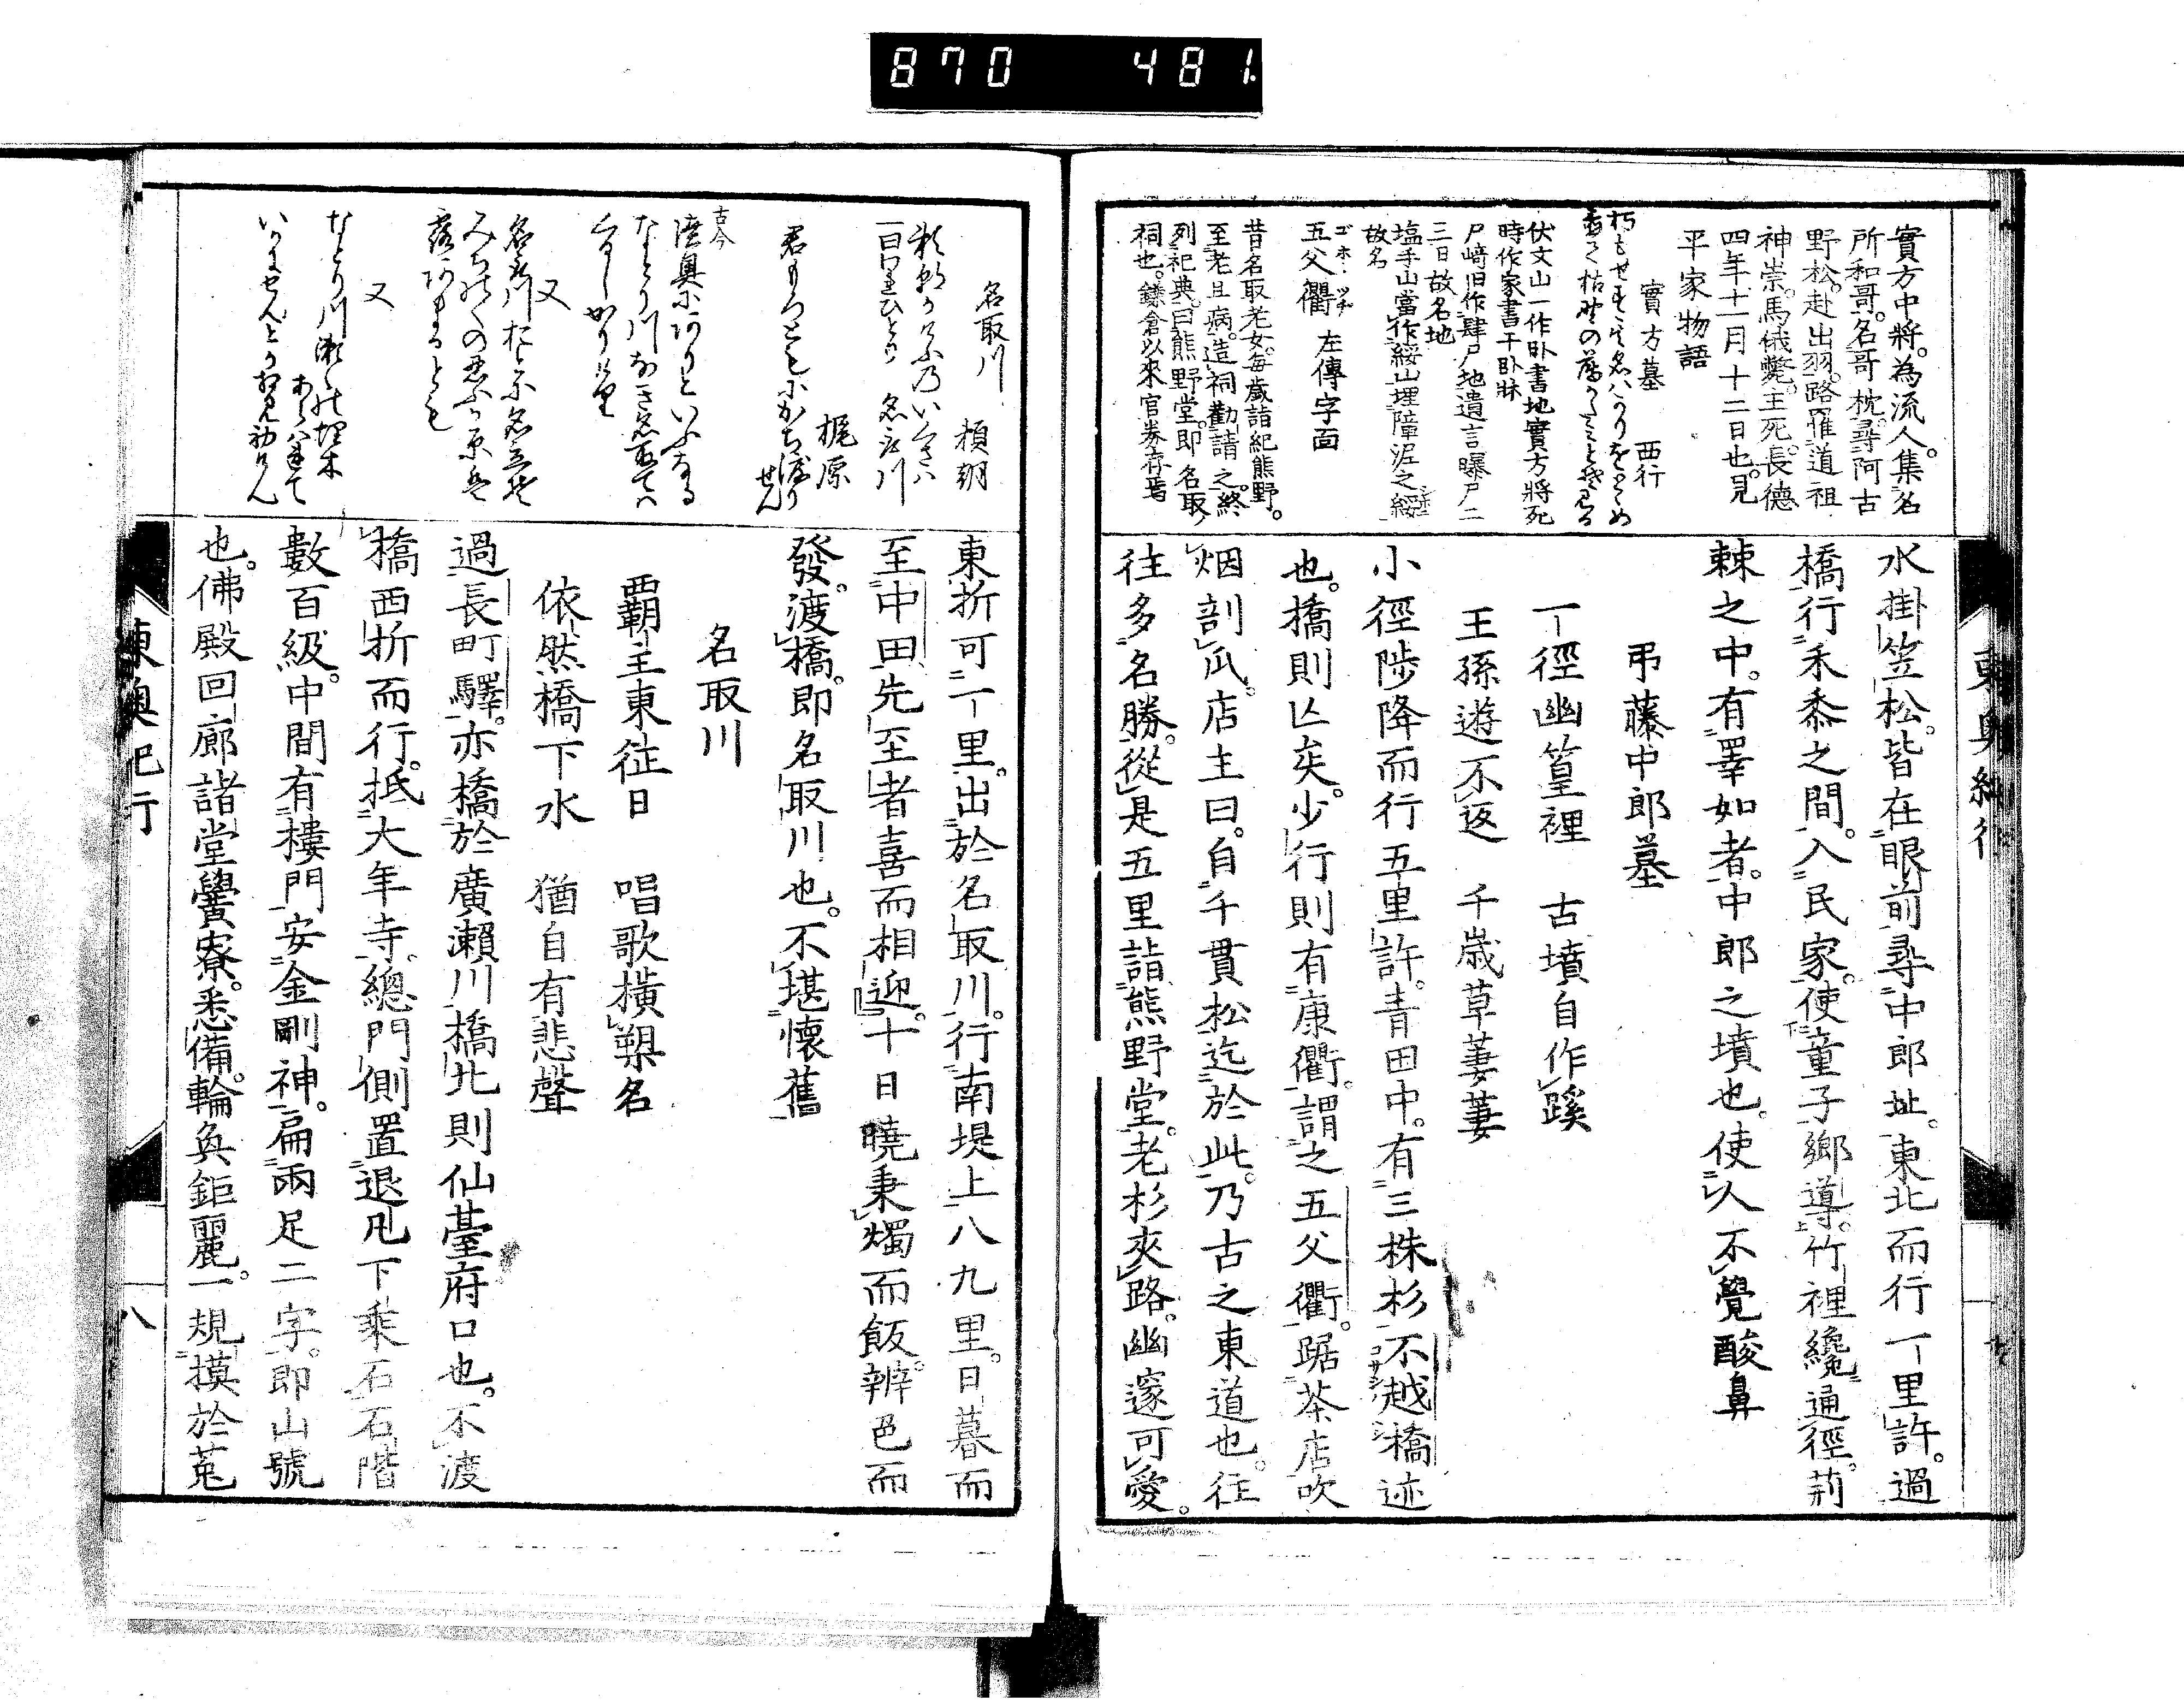 870 481
實方中將。為流人。集名
所和哥。名哥枕。尋阿古
野松。赴出羽。路罹道祖
神崇。馬俄斃。王死。長德
四年十一月十二日也。見
平家物語
實方墓 西行
朽もせぬ其名はかりをとゝめ
置て枯野の薄かたみとそ見る
伏文山一作臥書地實方將死
時作家書于臥牀
尸﨑旧作肆尸地遺言曝尸二
三日故名地
塩手山當作綏山埋障泥之綏
故名
五父衢 左傳字面
昔名取老女。每歲詣紀熊野。
至老且病。造祠勸請之。終
列祀典。曰熊野堂。即名取
祠也。鎌倉以來官券存焉
水掛笠松。皆在眼前尋中郎址。東北而行一里許。過
橋行禾黍之間。入民家。使童子鄉導。竹裡纔通徑。荊
棘之中。有睪如者。中郎之墳也。使人不覺酸鼻
弔藤中郎墓
一徑幽篁裡 古墳自作蹊
王孫遊不返 千歲草萋萋
小徑陟降而行五里許。青田中。有三株杉不越橋迹
也。橋則亾矣。少行則有康衢。謂之五父衢。踞茶店吹
烟剖瓜。店主曰。自千貫松迄於此。乃古之東道也。往
往多名勝。從是五里詣熊野堂。老杉夾路。幽邃可愛。
東奧紀行
名取川 頼朝
我獨けふのいくさに
名取川
梶原
君もろともにかち渡りせん
古今
陸奥にありといふなる
なとり川なき名取ては
くるしかりけり
又
又
なとり川瀬々の埋木
あらはれて
いかにせんとかあひ見初けん
東折可一里。出於名取川。行南堤上八九里。日暮而
至中田先至者喜而相迎。十日曉秉燭而飯。辨色而
發。渡橋。即名取川也。不堪懷舊
名取川
覇主東征日 唱歌橫槊名
依然橋下水 猶自有悲聲
過長町驛。亦橋於廣瀨川橋北則仙臺府口也。不渡
橋西折而行。抵大年寺。總門側置退凡下乘石石階
數百級。中間有樓門安金剛神。扁兩足二字。即山號
也。佛殿回廊諸堂黌寮。悉備。輪奐鉅麗。一規摸於菟
東奥紀行
八